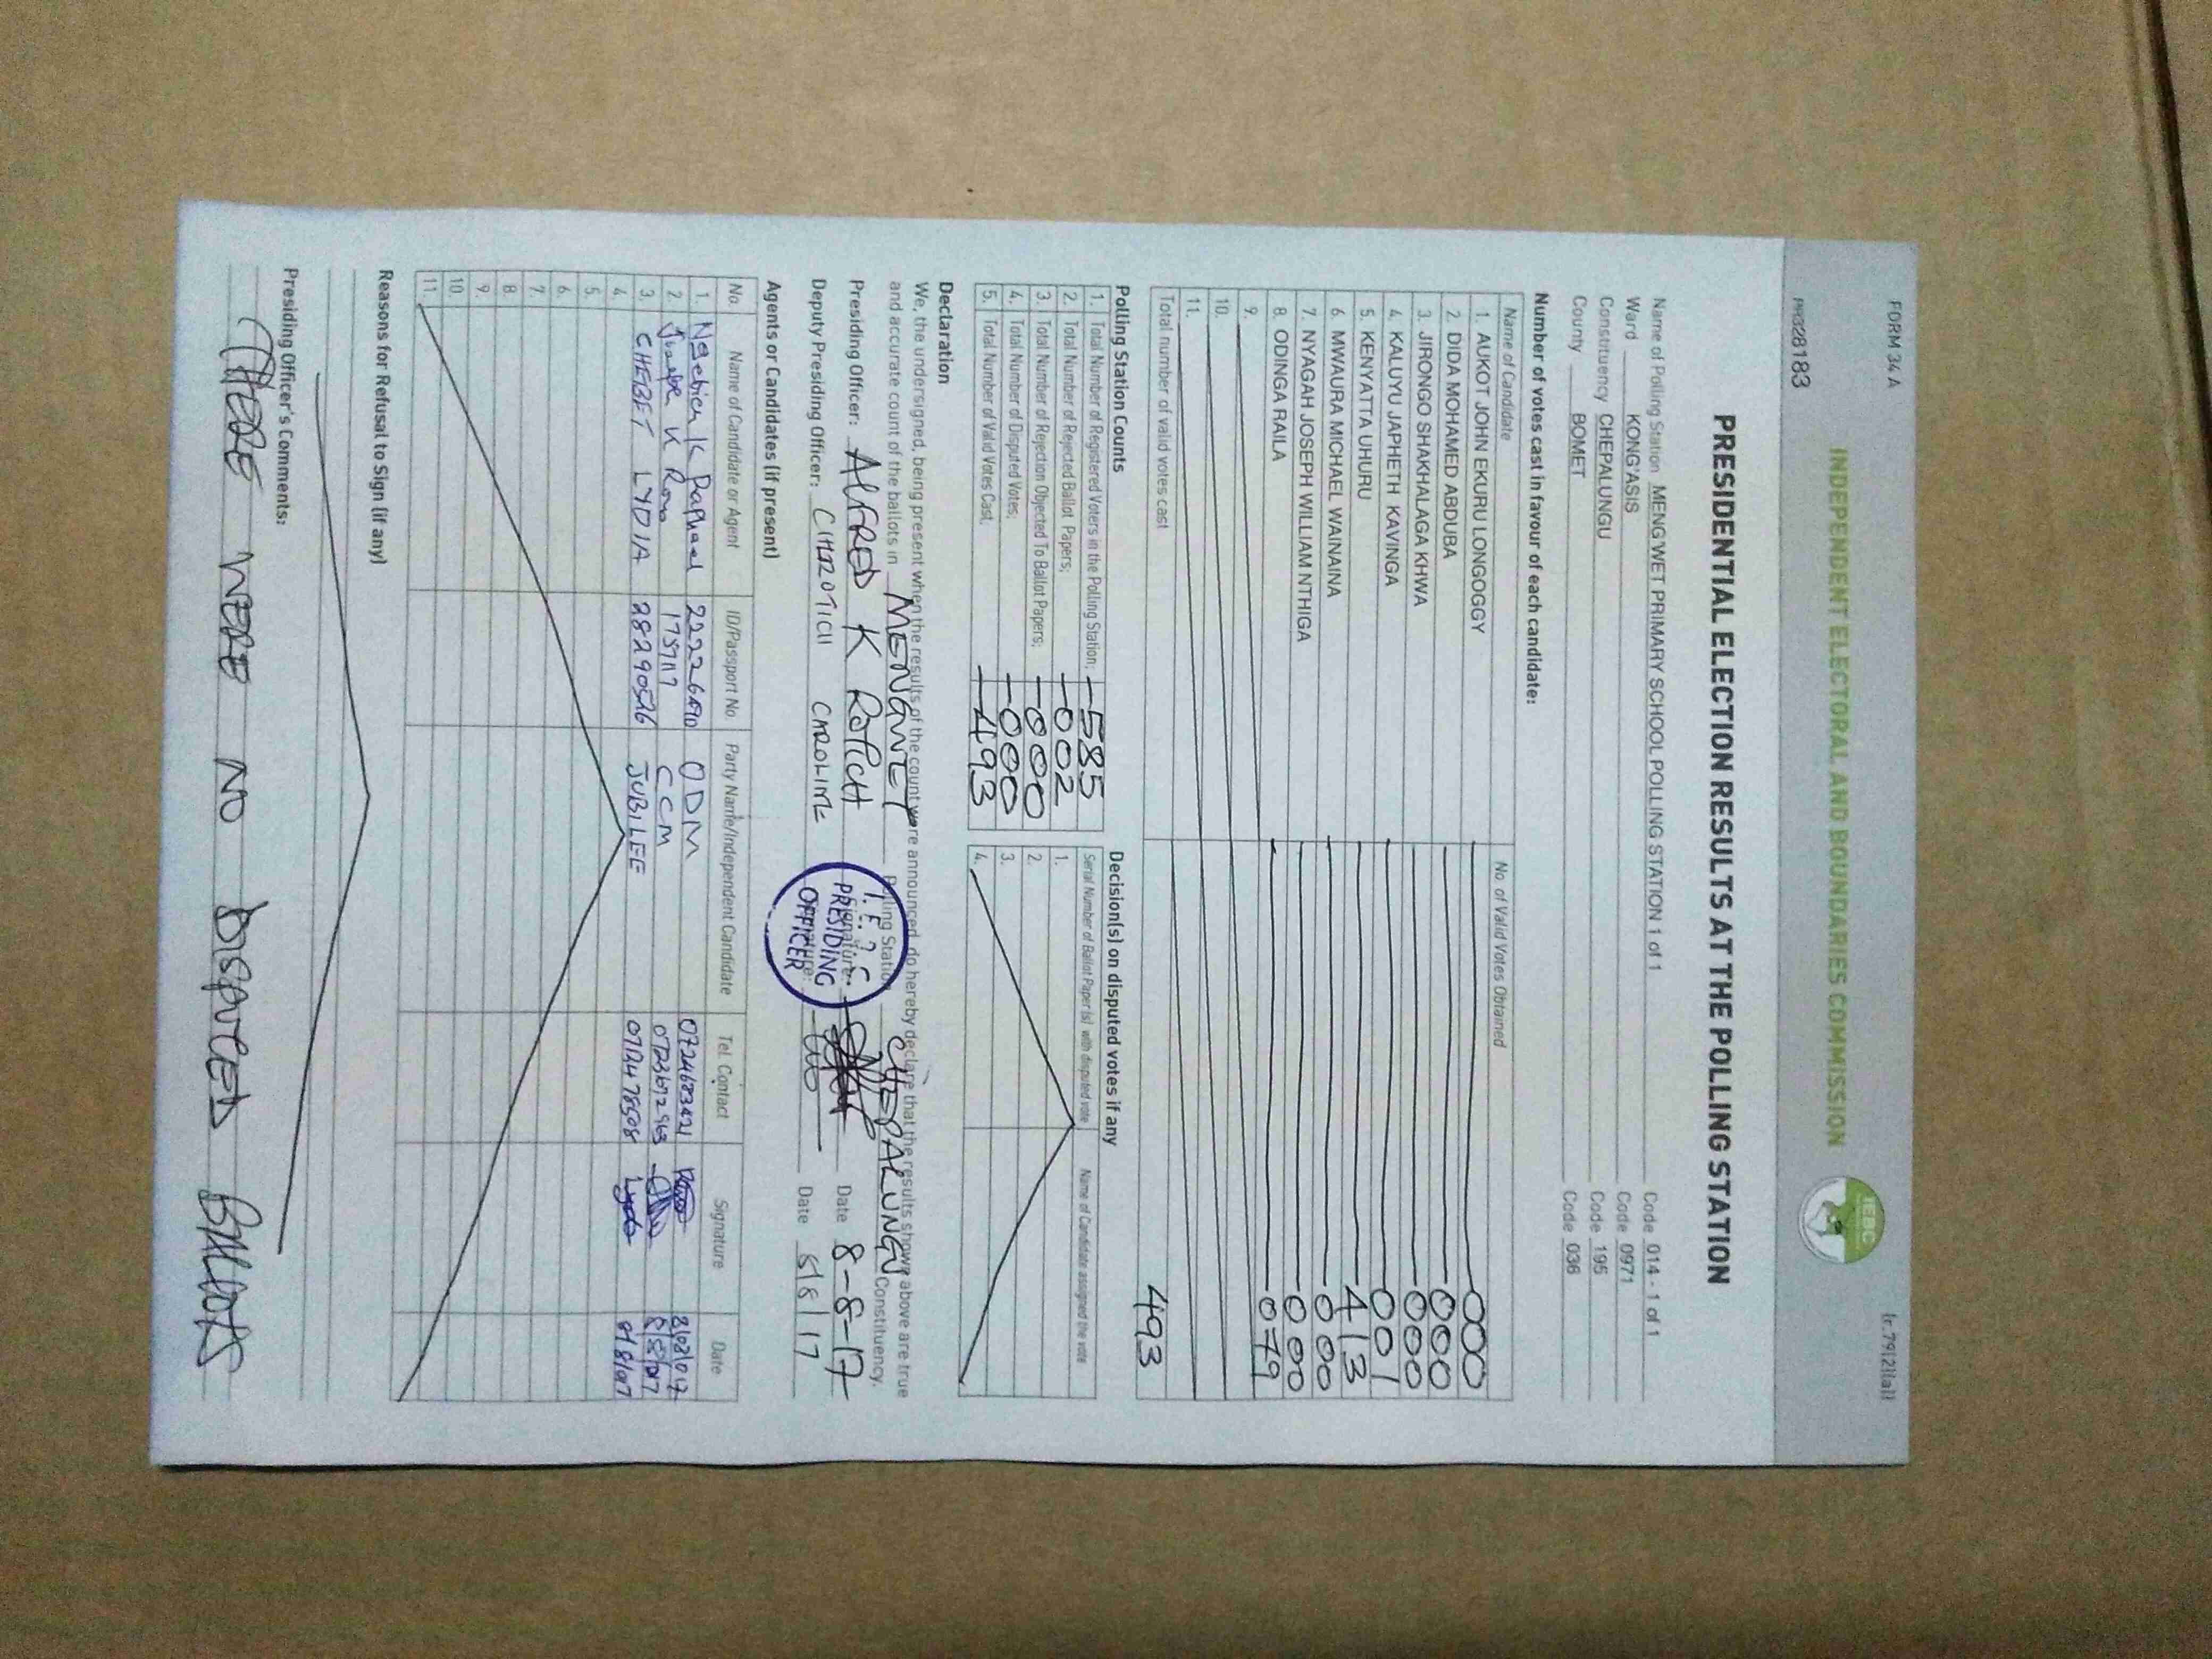 FORM 34 A
(r.79(2)(a))
INDEPENDENT ELECTORAL AND BOUNDARIES COMMISSION
IEBC
PR328183
PRESIDENTIAL ELECTION RESULTS AT THE POLLING STATION
Name of Polling Station MENG'WET PRIMARY SCHOOL POLLING STATION 1 of 1 Code 014 - 1 of 1
Ward KONG'ASIS Code 0971
Constituency CHEPALUNGU Code 195
County BOMET Code 036
Number of votes cast in favour of each candidate:
Name of Candidate No. of Valid Votes Obtained
1. AUKOT JOHN EKURU LONGOGGY 000
2. DIDA MOHAMED ABDUBA 000
3. JIRONGO SHAKHALAGA KHWA 000
4. KALUYU JAPHETH KAVINGA 001
5. KENYATTA UHURU 413
6. MWAURA MICHAEL WAINAINA 000
7. NYAGAH JOSEPH WILLIAM NTHIGA 000
8. ODINGA RAILA 079
9.
10.
11.
Total number of valid votes cast 493
Polling Station Counts
1. Total Number of Registered Voters in the Polling Station: 585
2. Total Number of Rejected Ballot Papers: 002
3. Total Number of Rejection Objected To Ballot Papers: 000
4. Total Number of Disputed Votes: 000
5. Total Number of Valid Votes Cast: 493
Decision(s) on disputed votes if any
Serial Number of Ballot Paper (s) with disputed vote Name of Candidate assigned the vote
1.
2.
3.
4.
Declaration
We, the undersigned, being present when the results of the count were announced, do hereby declare that the results shown above are true
and accurate count of the ballots in MENGWET Polling Station CHEPALUNGU Constituency.
Presiding Officer: ALFRED K ROTICH Signature: Date 8-8-17
Deputy Presiding Officer: CHEROTICH CAROLINE Signature: Date 8/8/17
PRESIDING
OFFICER
Agents or Candidates (if present)
No. Name of Candidate or Agent ID/Passport No. Party Name/Independent Candidate Tel. Contact Signature Date
1. K Raphael ODM
2. K Rono CCM
3. CHEBET LYDIA JUBILEE
4.
5.
6.
7.
8.
9.
10.
11.
Reasons for Refusal to Sign (if any)
Presiding Officer's Comments:
THERE WERE NO DISPUTED BALLOTS